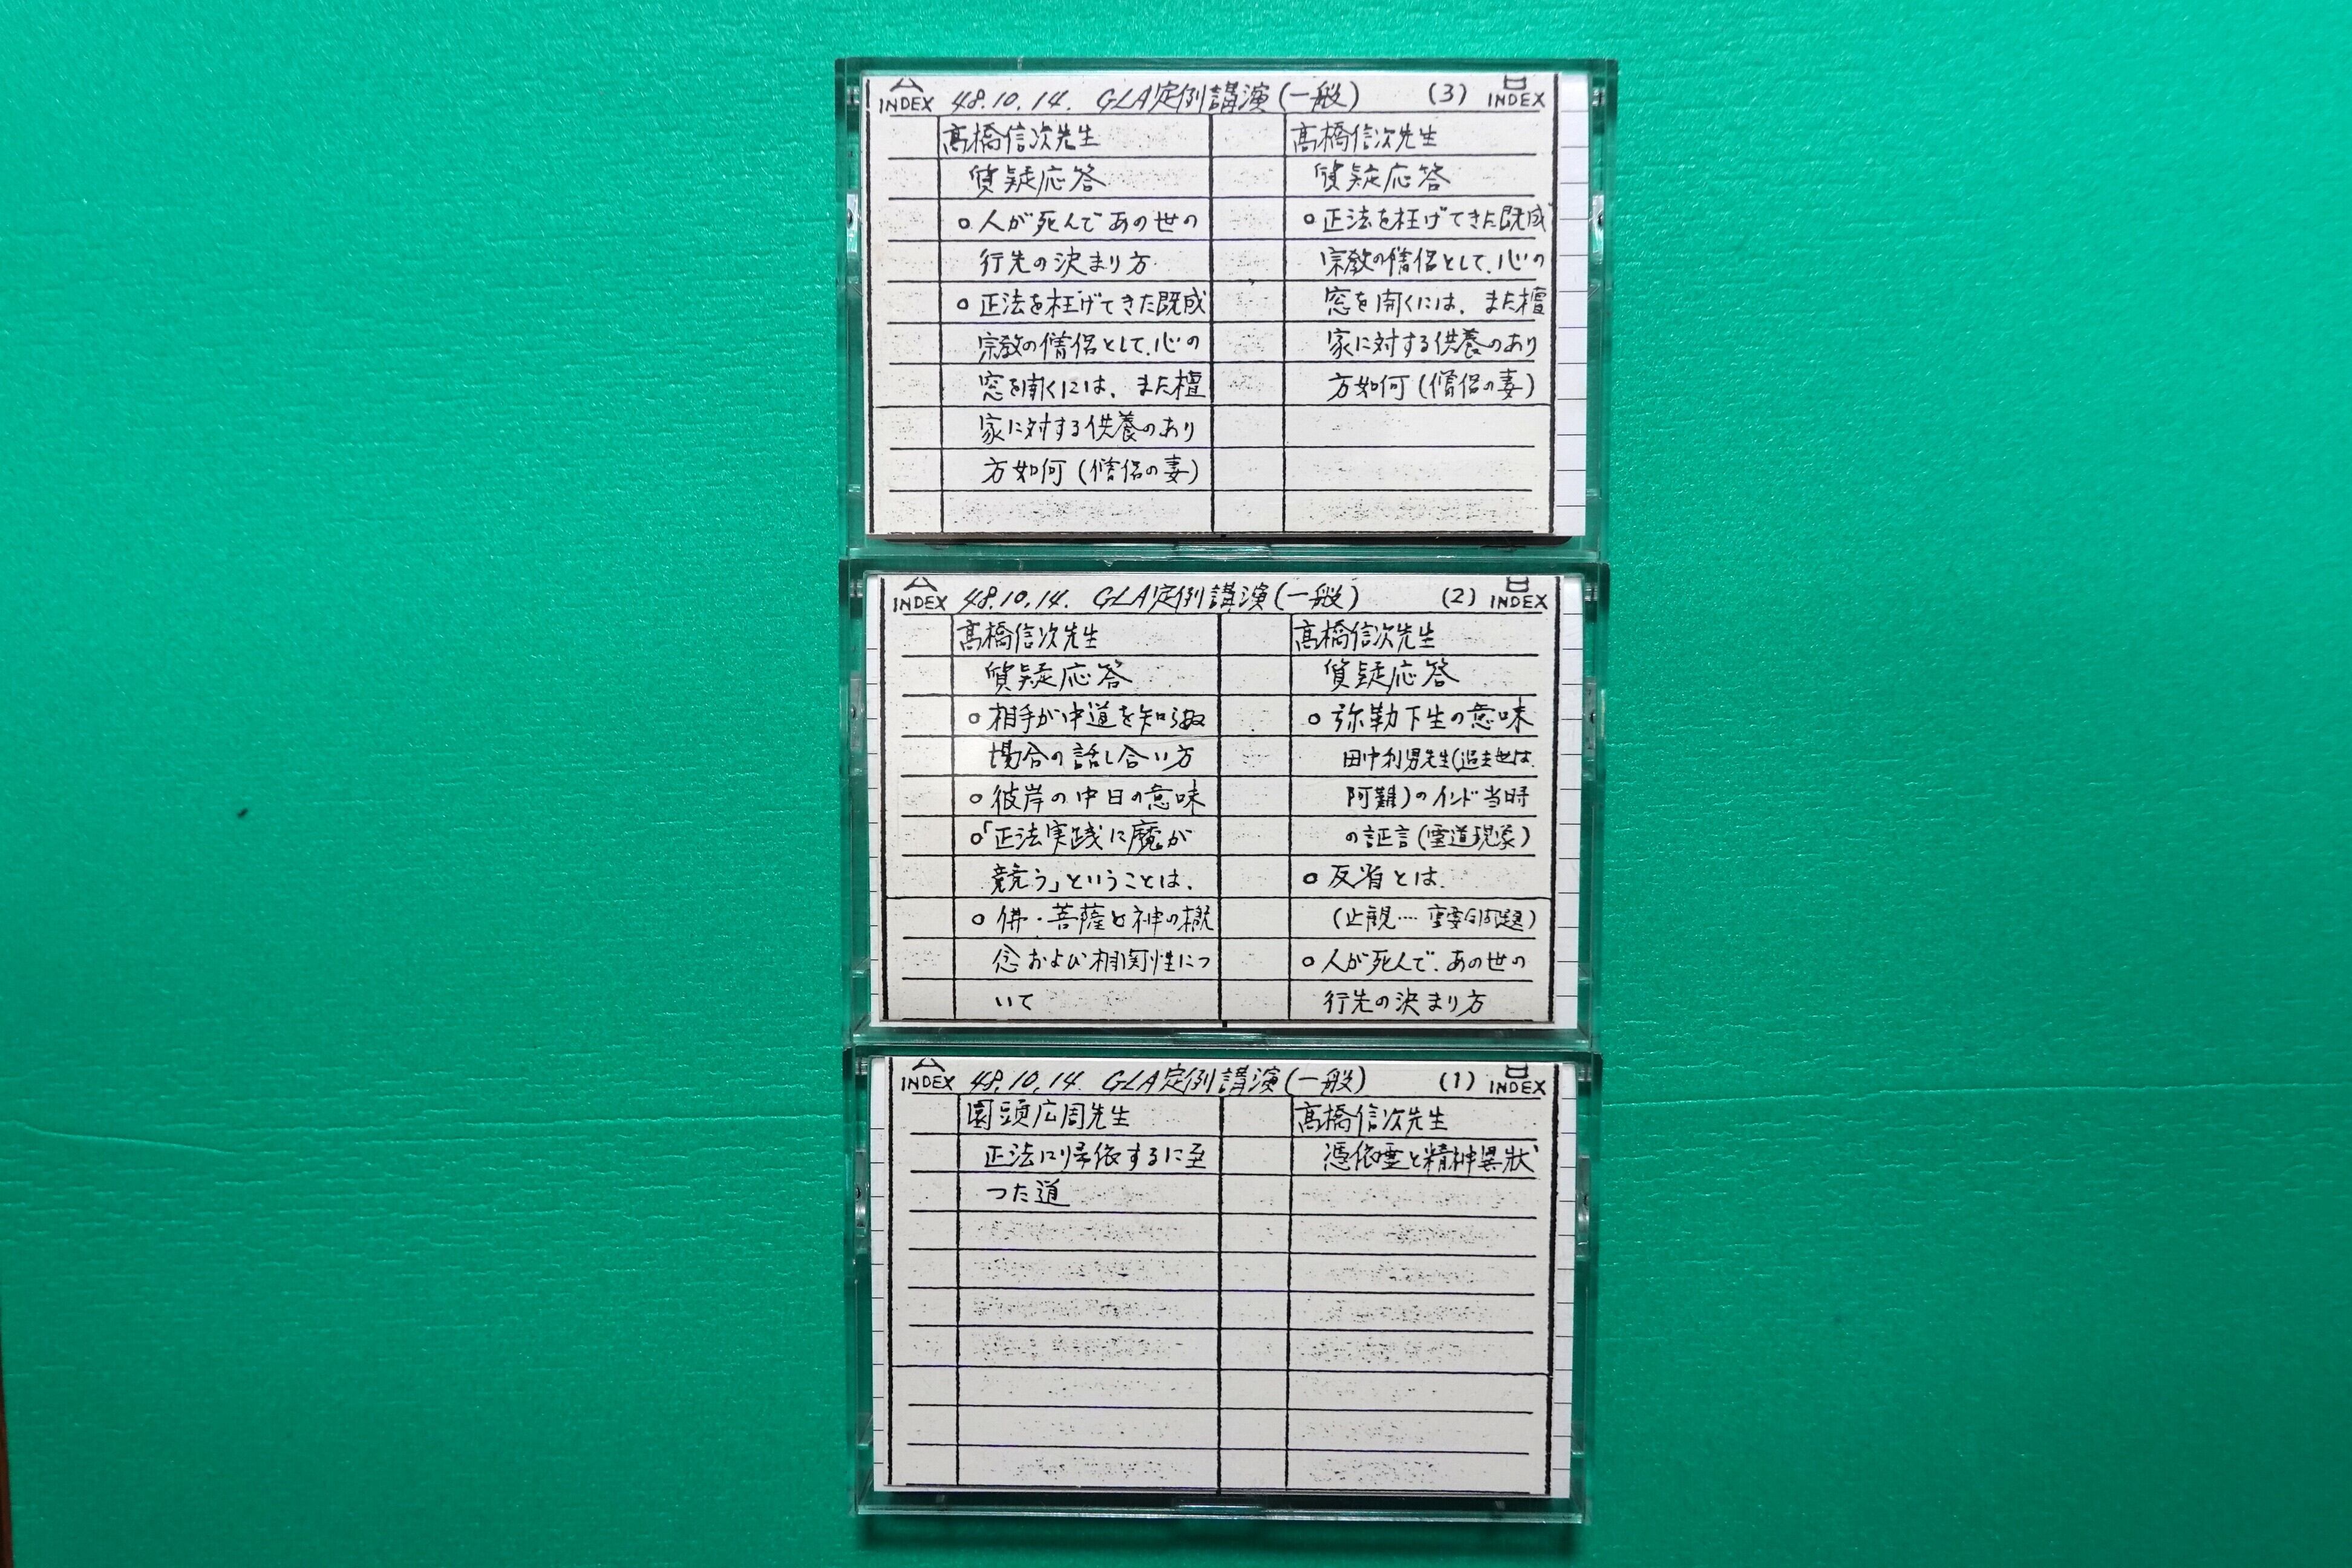 A INDEX 48.10.14. GLA定例講演(一般) (3) B INDEX
髙橋信次先生
質疑応答
○人が死んであの世の
行先の決まり方
○正法を枉げてきた既成
宗教の僧侶として、心の
窓を開くには、また檀
家に対する供養のあり
方如何(僧侶の妻)
髙橋信次先生
質疑応答
○正法を枉げてきた既成
宗教の僧侶として、心の
窓を開くには、また檀
家に対する供養のあり
方如何(僧侶の妻)
A INDEX 48.10.14. GLA定例講演(一般) (2) B INDEX
髙橋信次先生
質疑応答
○相手が中道を知らぬ
場合の話し合い方
○彼岸の中日の意味
○「正法実践に魔が
競う」ということは、
○佛・菩薩と神の概
念および相関性につ
いて
髙橋信次先生
質疑応答
○弥勒下生の意味
田中利男先生(過去世は、
阿難)のインド当時
の証言(霊道現象)
○反省とは、
(止観…重要な問題)
○人が死んで、あの世の
行先の決まり方
A INDEX 48.10.14. GLA定例講演(一般) (1) B INDEX
園頭広周先生
正法に帰依するに至
つた道
髙橋信次先生
憑依霊と精神異状